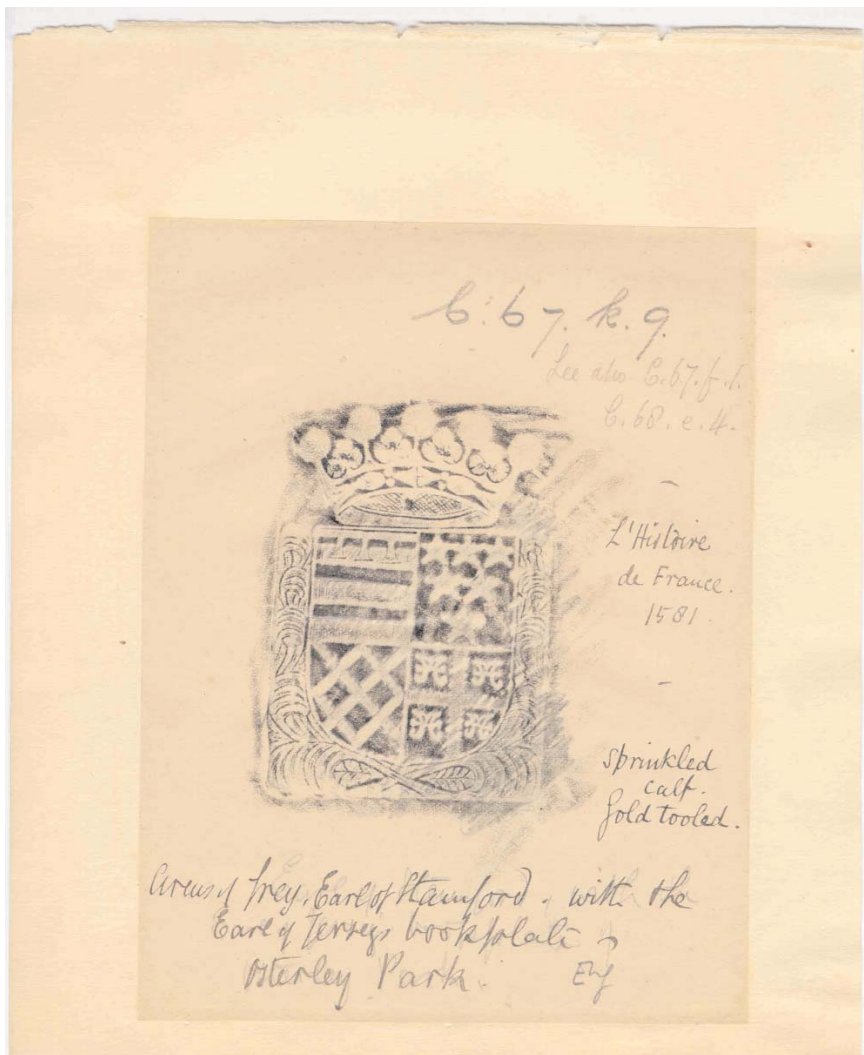 C.67.k.9.
See also C.67.f.1.
C.68.e.4.
L'Histoire
de France.
1581
sprinkled
calf.
Gold tooled.
Arms of Grey, Earl of Stamford. with the
Earl of Jerseys bookplate
Osterley Park.
Eng